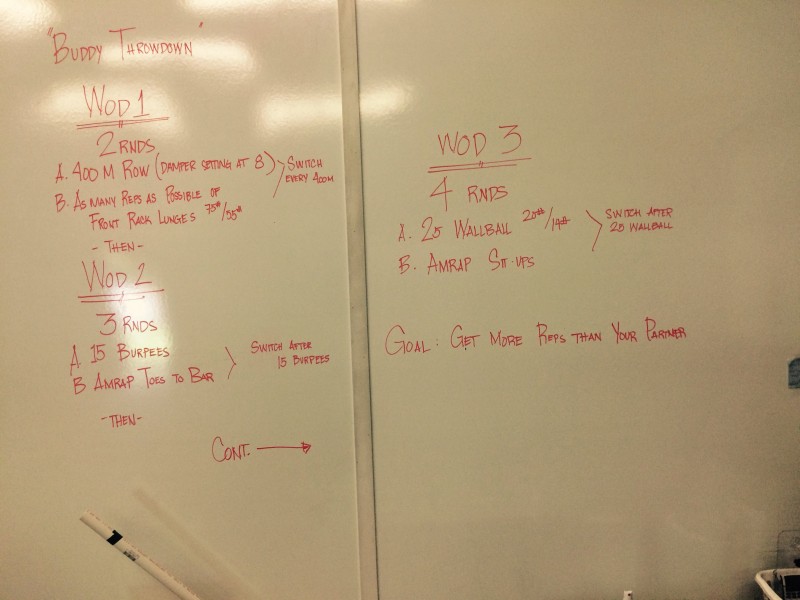 "Buddy Throwdown"
WOD 1
2 RNDS
A. 400 M ROW (DAMPER SETTING AT 8)
SWITCH
EVERY 400M
B. AS MANY REPS AS POSSIBLE OF
FRONT RACK LUNGES 75#/55#
- THEN -
WOD 2
3 RNDS
A 15 BURPEES
B AMRAP TOES TO BAR
SWITCH AFTER
15 BURPEES
- THEN -
CONT. →
WOD 3
4 RNDS
A. 25 WALLBALL 20#/14#
B. AMRAP SIT-UPS
SWITCH AFTER
25 WALLBALL
GOAL: GET MORE REPS THAN YOUR PARTNER